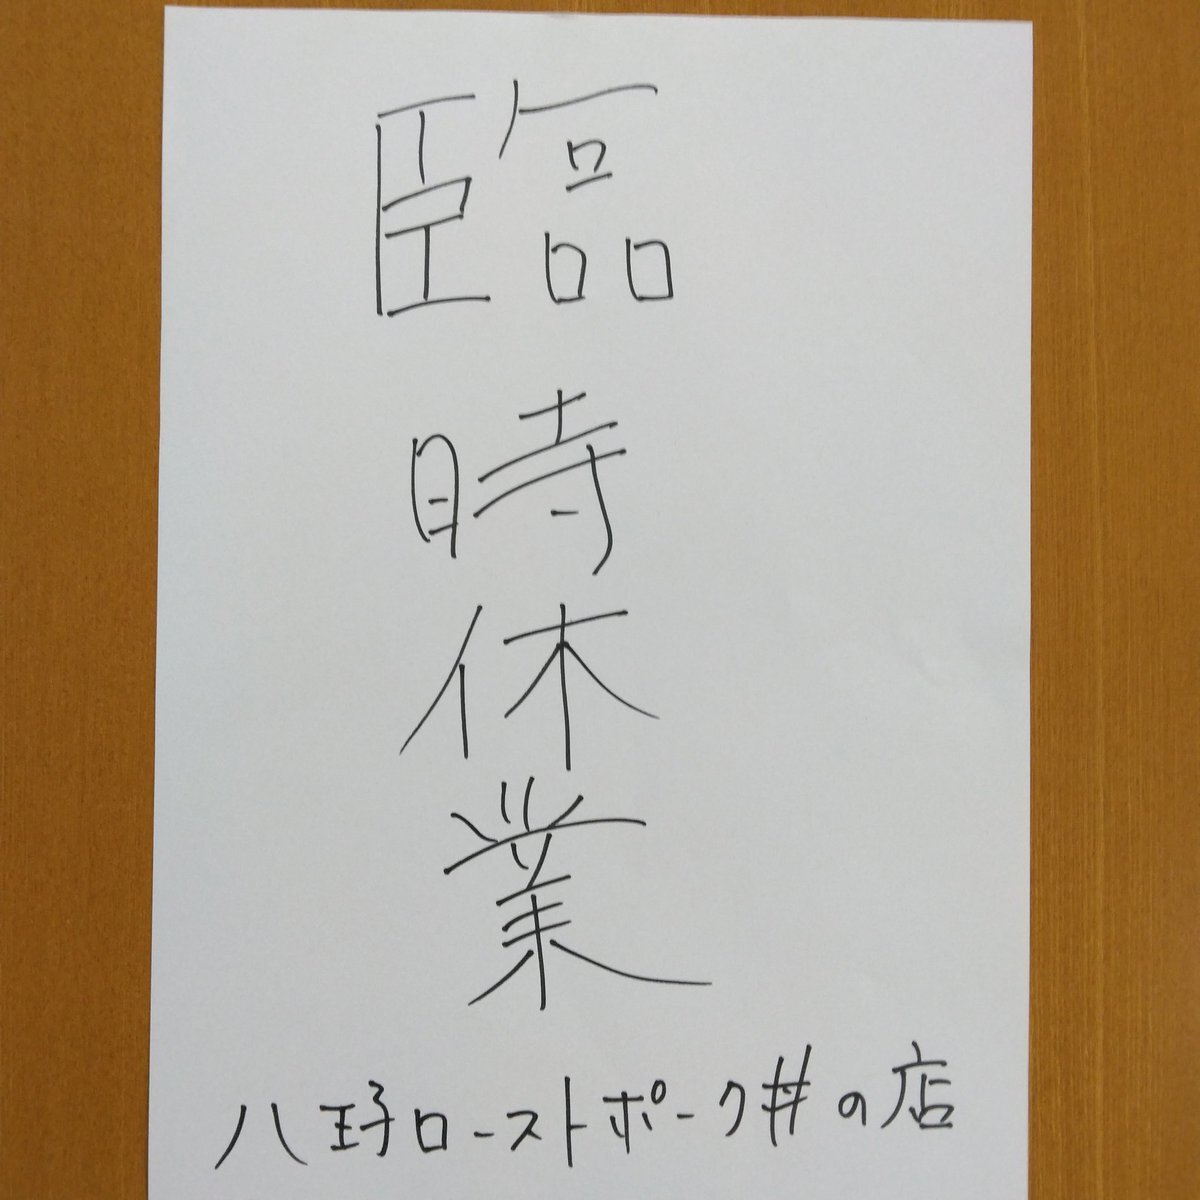 臨時休業
八王子ローストポーク丼の店